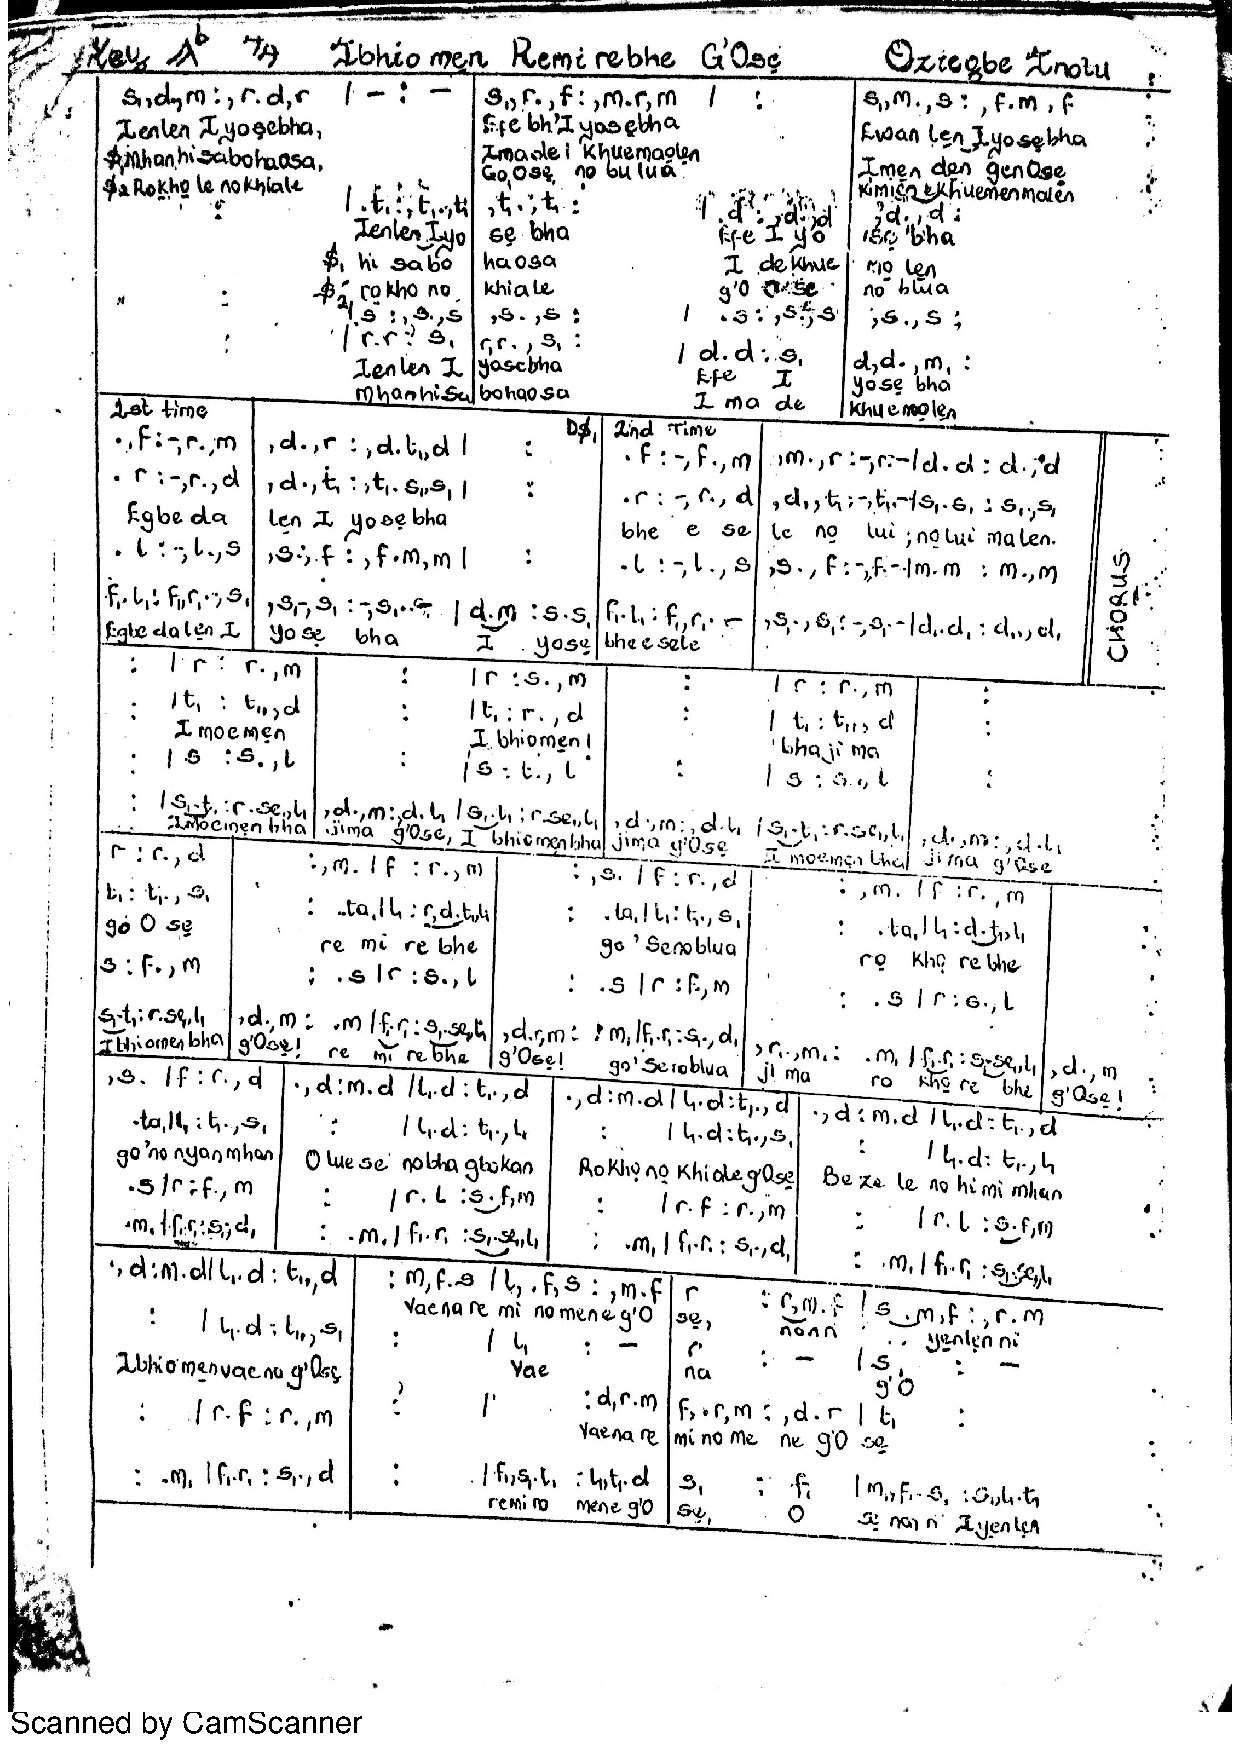 Key Ab 7/4 Ibhiomẹn Remi rebhe G'Osẹ Oziegbe Inotu
s₁,d,m :, r.d,r / – : – s₁,r., f :, m.r, m / : s₁,m., s : , f.m , f
Ienlen Iyosẹbha, Efe bh'Iyosẹbha Ewan lẹn Iyosẹbha
$1 Mhanhisabohaosa, Imade i khuemaọlẹn Imẹn dẹn gẹnOsẹ
$2 Rokhọ le no khiale Go, Osẹ no bu lua kimiẹn ekhuemenmalẹn
: / .t₁ :, t₁., t₁ ,t₁. , t₁ : / .d : ,d.,d ,d., d :
Ienlen Iyo sẹ bha Efe I yo isẹ 'bha
$1 hi sabo haosa I de khue mọ lẹn
" : $2 rọ kho no khiale g'O se nọ blua
/ .s : ,s.,s ,s., s : / .s : ,s.,s ,s., s :
: / r.r : s₁ r,r. , s₁ : / d.d : s₁ d,d. , m₁ :
Ienlen I yasebha Efe I yosẹ bha
Mhanhisa bohaosa I ma de khuemọlẹn
1st time D$1 2nd Time
., f :-, r., m , d., r : , d.t₁,d / : . f :-, f., m ,m., r :-, r.- / d.d : d., d
. r :-, r., d , d., t₁ : , t₁.s₁,s₁ / : . r :-, r., d , d., t₁ :-, t₁.- / s₁.s₁ : s₁., s₁
Egbe da lẹn I yosẹbha bhe e se le nọ lui ; nọ lui ma len.
. l :-, l., s ,s., f : , f.m,m / : . l :-, l., s ,s., f :-, f.- / m.m : m., m
f₁.l₁ : f₁,r₁.-, s₁ ,s₁-, s₁ :-, s₁.s / d.m : s.s₁ f₁.l₁ : f₁,r₁.- , s₁., s₁ :-, s₁.- / d₁.d₁ : d₁., d₁
Egbe da lẹn I yosẹ bha I yosẹ bhe esele
CHORUS
: / r : r., m : / r : s., m : / r : r., m :
: / t₁ : t₁., d : / t₁ : r., d : / t₁ : t₁., d :
I moemẹn I bhiomẹn! 'bha ji ma
: / s : s., l : / s : t., l : / s : s., l :
: / s₁.t₁ : r.se₁,l₁ , d., m :, d.l₁ / s₁.t₁ : r.se₁,l₁ , d., m :, d.l₁ / s₁.t₁ : r.se₁,l₁ , d., m :, d.l₁
Imoemen bha jima g'Ose, I bhiomẹn bha jima g'Ose I moemẹn bha ji ma g'Ose
r : r., d :, m. / f : r., m :, s. / f : r., d :, m. / f : r., m
t₁ : t₁., s₁ : .ta₁ / l₁ : r,d.t₁,l₁ : .ta₁ / l₁ : t₁., s₁ : .ta₁ / l₁ : d.t₁,l₁
gó O sẹ re mi re bhe go 'Senoblua rọ khọ re bhe
s : f., m : .s / r : s., l : .s / r : f., m : .s / r : s., l
s₁.t₁ : r.se₁,l₁ , d., m : .m / f₁.r₁ : s₁.se₁,l₁ , d.r, m : .m₁ / f₁.r₁ : s₁., d₁ , r₁., m₁ : .m₁ / f₁.r₁ : s₁.se₁,l₁ , d., m
I bhiomẹn bha g'Osẹ! re mi re bhe g'Osẹ! go' Senoblua ji ma ro khọ re bhe g'Osẹ!
, s. / f : r., d ., d : m.d / l₁.d : t₁., d ., d : m.d / l₁.d : t₁., d ., d : m.d / l₁.d : t₁., d
.ta₁ / l₁ : t₁., s₁ : / l₁.d : t₁., l₁ : / l₁.d : t₁., s₁ : / l₁.d : t₁., l₁
go' no nyan mhan O lue se' nọ bha gbokan Ro Khọ nọ Khiale g'Osẹ Be ze le no hi mi mhan
.s / r : f., m : / r.l : s.f,m : / r.f : r., m : / r.l : s.f,m
.m₁ / f₁.r₁ : s₁., d₁ : .m₁ / f₁.r₁ : s₁.se₁,l₁ : .m₁ / f₁.r₁ : s₁., d₁ : .m₁ / f₁.r₁ : s₁.se₁,l₁
., d : m.d / l₁.d : t₁., d : m, f.s / l, .f, s : , m.f r : r, m.f / s .m, f : , r.m
Vae na re mi no mene g'O sẹ, nọnn yẹnlẹn ni
: / l₁.d : t₁., s₁ : / l₁ : – r : – / s₁ : –
Ibhiomẹn vae no g'Osẹ Vae na g'O
: / r.f : r., m : / : d, r.m f, .r, m : , d.r / t₁ :
Vae na re mi no me ne g'O sẹ
: .m₁ / f₁.r₁ : s₁., d : / f₁,s₁.l₁ : l₁,t₁.d s₁ : f₁ / m₁, f₁.s₁ : s₁,l₁.t₁
remi no mene g'O sẹ, O sẹ nọn n' Iyẹnlẹn
Scanned by CamScanner